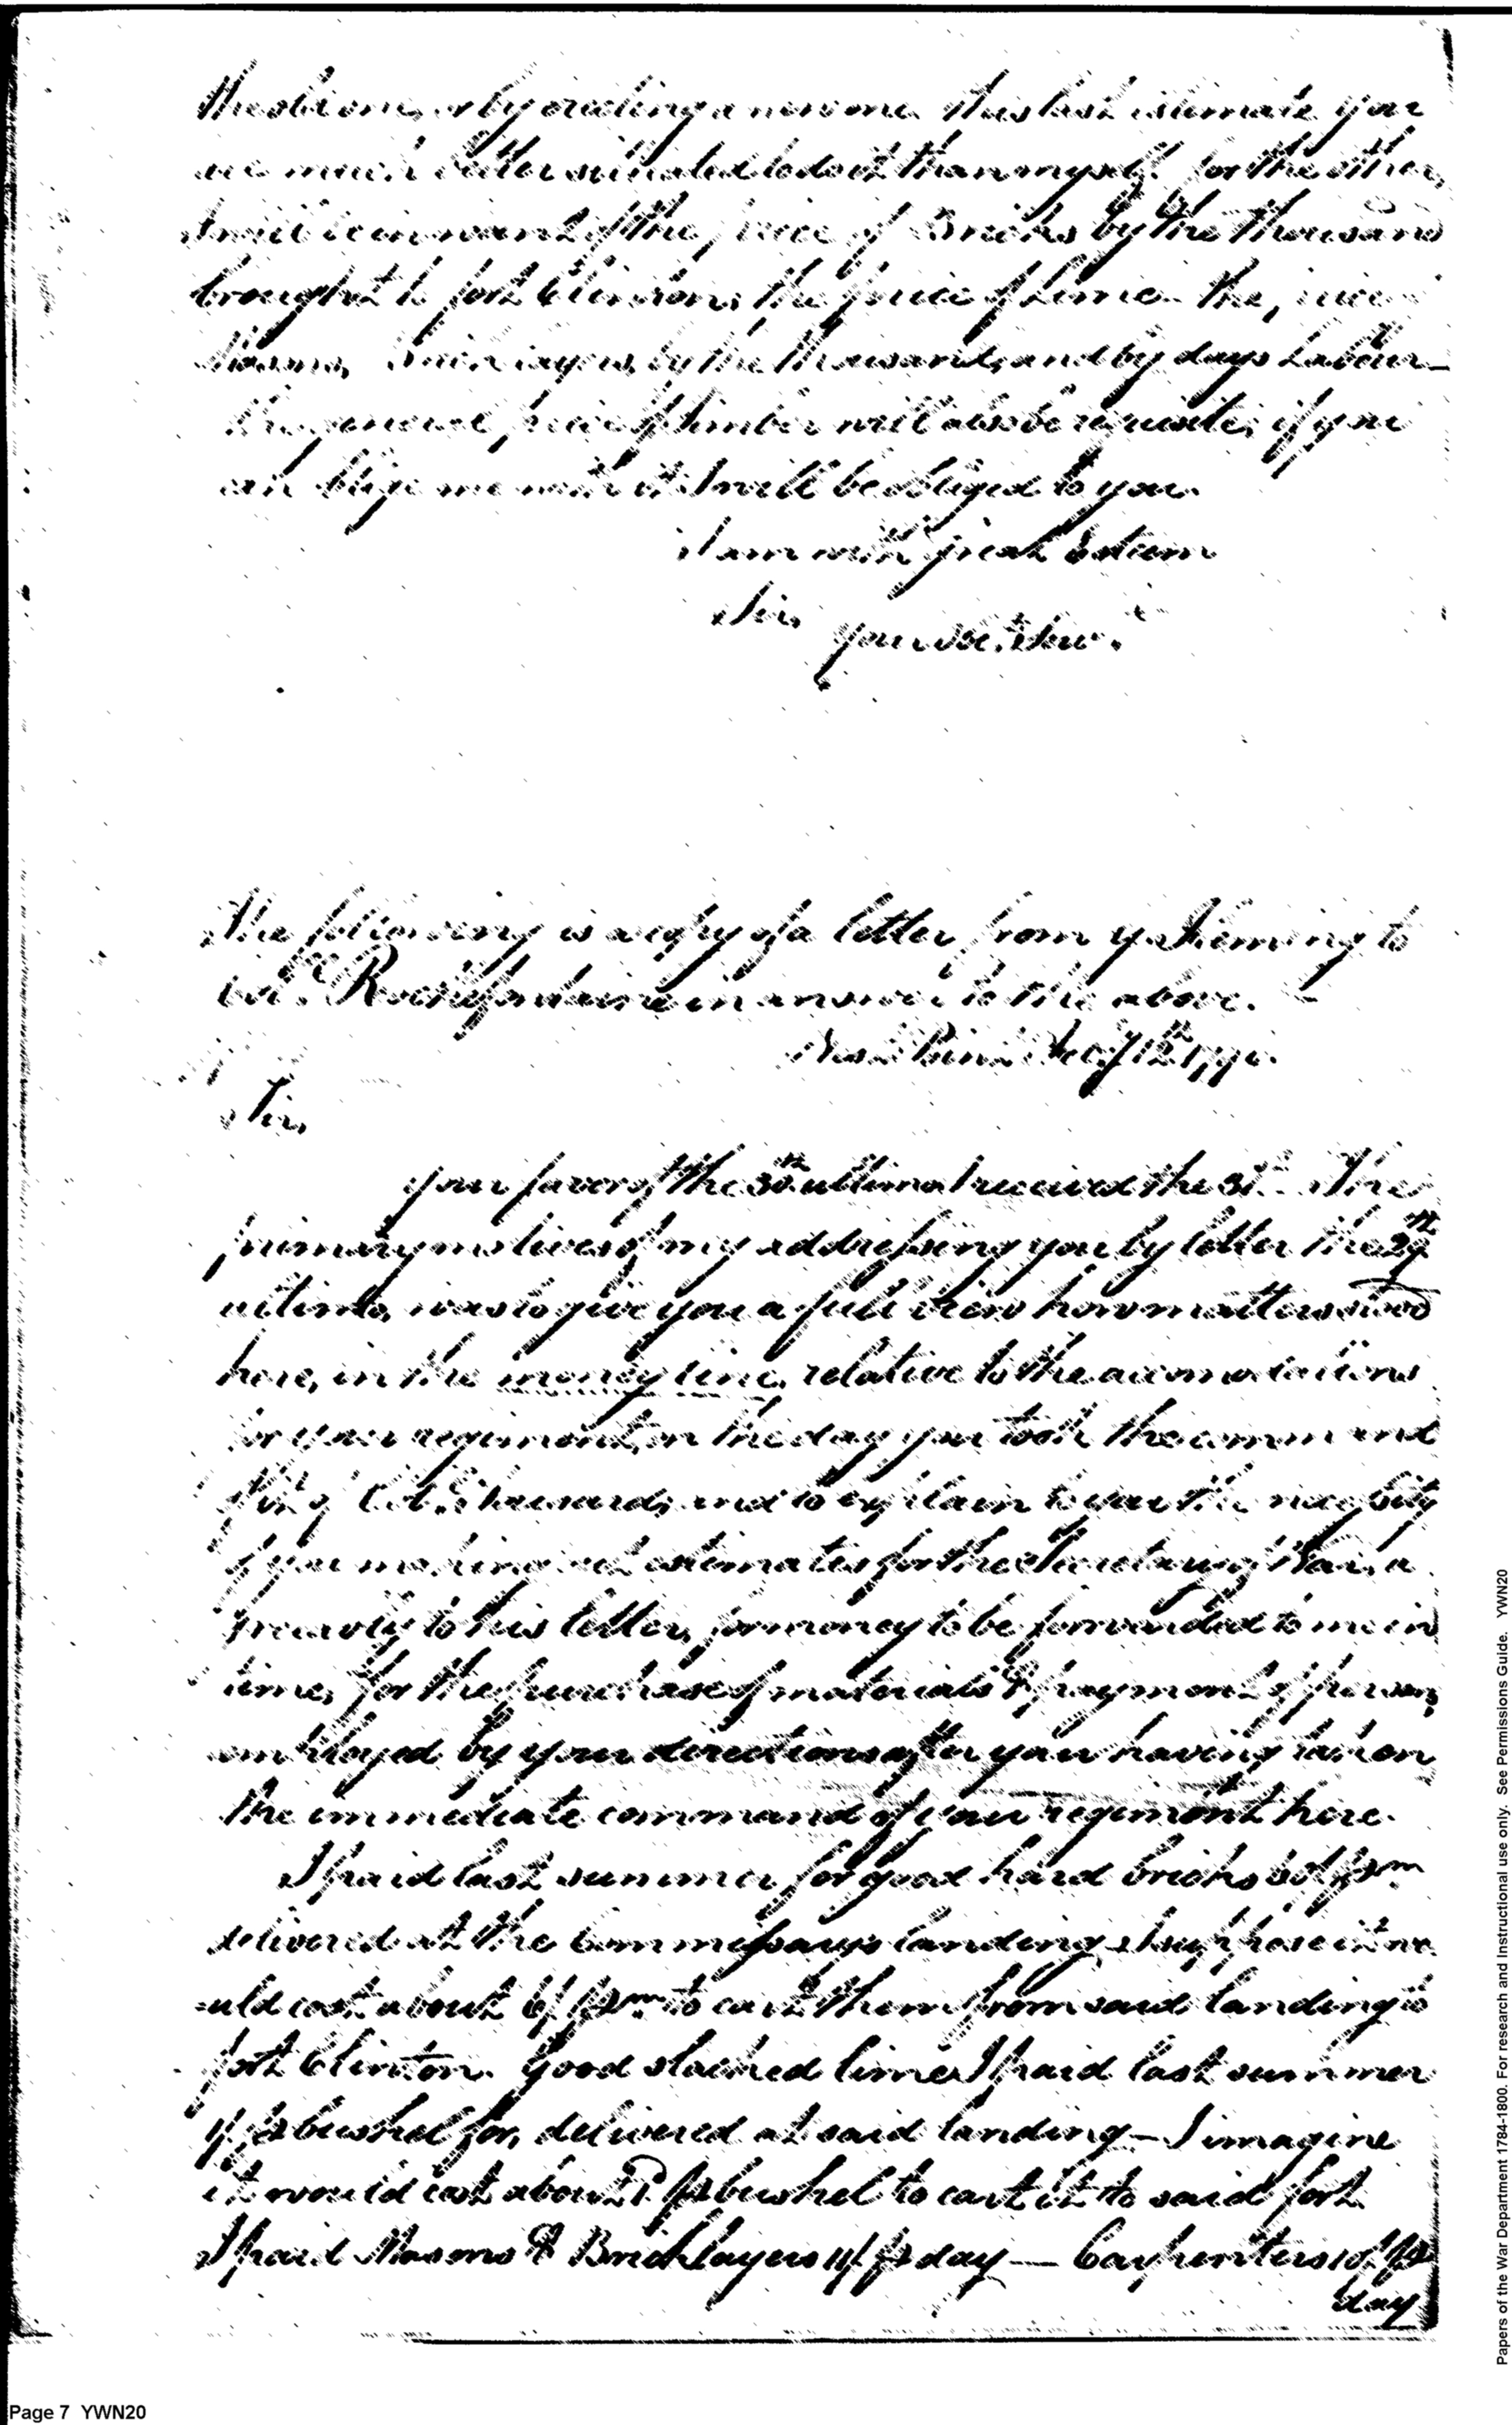 the old one, or by erecting a new one. This last estimate you
are much better situated to do it than myself. for the other,
I will be in want of the price of Bricks by the thousand
brought to fort Clinton, the price of Lime. the price
Masons, Brick layers, by the thousand, and by days Labour—
The general price of timber will also be requisite; if you
can oblige me with it I will be obliged to you.
I am with great Esteem
Sir,
your obt. Serv.t
The following is a copy of a letter from G. Fleming to
Col. Rochefontaine in answer to the above.
West Point Jan.y 12th 179
Sir,
your favor of the 30th ultimo I received the 31st. The
primary motives of my addressing you by letter the 29th
ultimo, was to give you a full view how matters stood
here, in the money line, relative to the accomodations
for your regiment, on the day you took the command
of Col. and to explain to you the necessity
of you making out estimates for the Secretary of War, a
greeably to his letter, for money to be forwarded to me in
time, for the purchase of materials & payment of persons
employed by your directions after your having taken
the immediate command of your regiment here.
I paid last summer for good hard bricks 50/ pr m
delivered at the Commissarys landing, I suppose it wo
uld cost about 6/ pr m to cart them from said landing to
fort Clinton. Good slacked lime I paid last summer
1/ pr bushel for, delivered at said landing — I imagine
it would cost about pr bushel to cart it to said fort
I paid Masons & Bricklayers 11/ pr day — Carpenters 10/ pr
day
Papers of the War Department 1784-1800. For research and Instructional use only. See Permissions Guide. YWN20
Page 7 YWN20